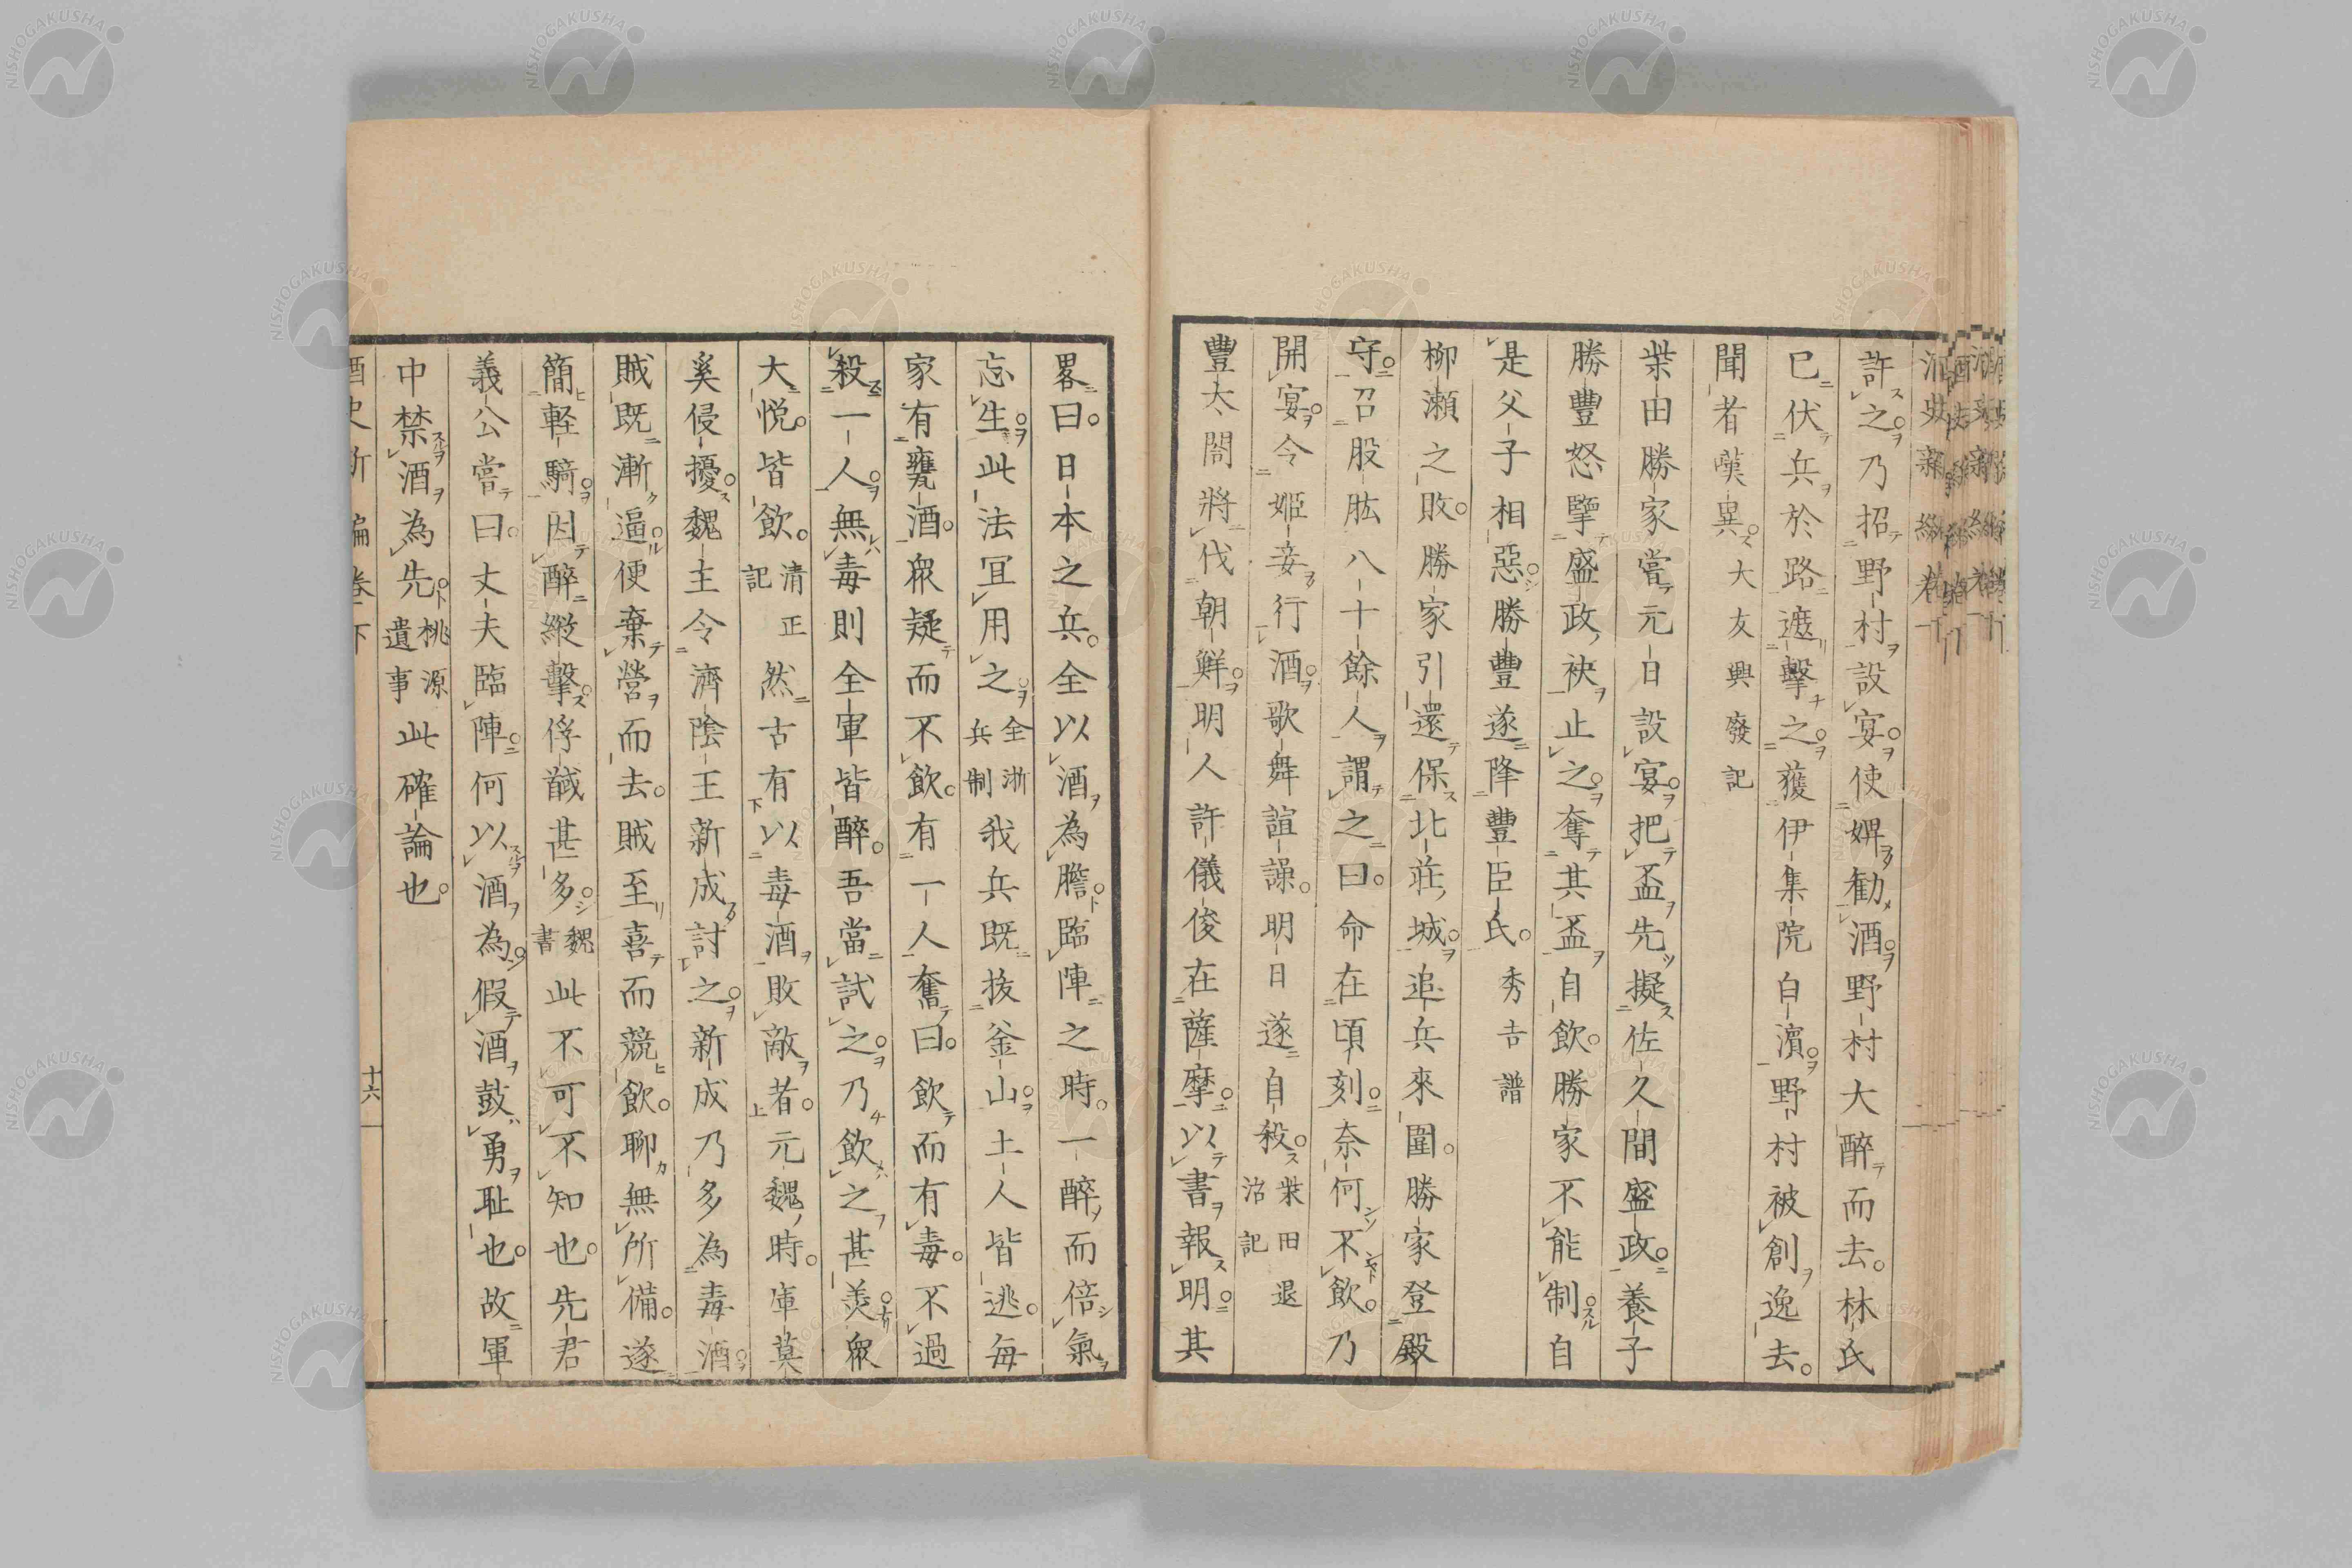 許之乃招野村設宴使婢勸酒野村大醉而去林氏
已伏兵於路遮擊之獲伊集院白濱野村被創逸去
聞者嘆異大友興廢記
柴田勝家嘗元日設宴把盃先擬佐久間盛政養子
勝豐怒擊盛政袂止之奪其盃自飲勝家不能制自
是父子相惡勝豐遂降豐臣氏秀吉譜
柳瀨之敗勝家引還保北莊城追兵來圍勝家登殿
守召股肱八十餘人謂之曰命在頃刻奈何不飲乃
開宴令姬妾行酒歌舞諠譟明日遂自殺柴田退治記
豐太閤將伐朝鮮明人許儀俊在薩摩以書報明其
畧曰日本之兵全以酒為膽臨陣之時一醉而倍氣
忘生此法冝用之全浙兵制我兵既拔釜山土人皆逃每
家有甕酒眾疑而不飲有一人奮曰飲而有毒不過
殺一人無毒則全軍皆醉吾當試之乃飲之甚羨眾
大悅皆飲清正記然古有以毒酒敗敵者元魏時庫莫
奚侵擾魏主令濟陰王新成討之新成乃多為毒酒
賊既漸逼便棄營而去賊至喜而競飲聊無所備遂
簡軽騎因醉縱擊俘馘甚多魏書此不可不知也先君
義公嘗曰丈夫臨陣何以酒為假酒鼓勇耻也故軍
中禁酒為先桃源遺事此確論也
酒史新編卷下
十六
NISHOGAKUSHA